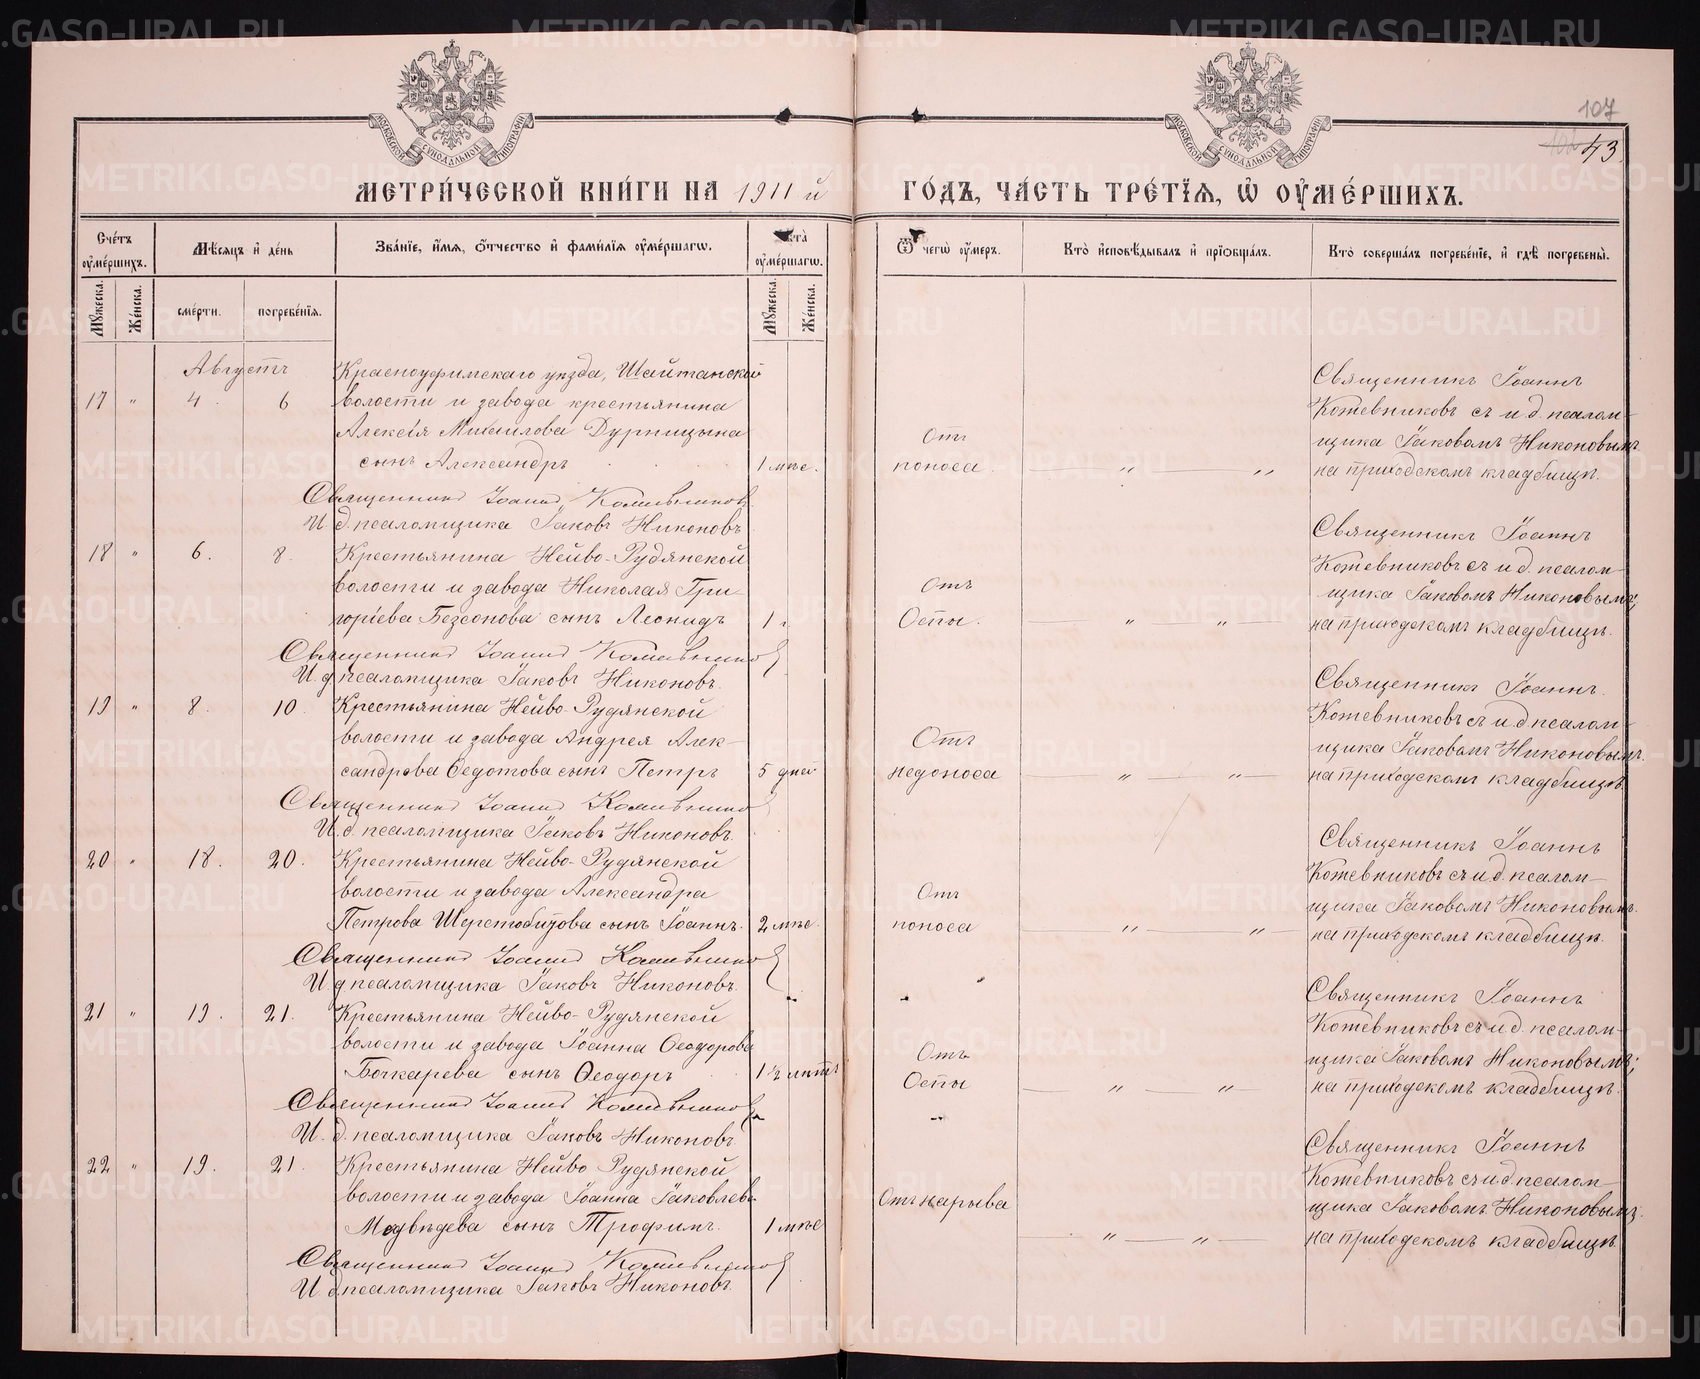 107
43
МЕТРИ́ЧЕСКОЙ КНИ́ГИ НА 1911 й ГО́ДЪ, ЧА́СТЬ ТРЕ́ТЇѦ, Ѡ҆ ОУ҆МЕ́РШИХЪ.
МОСКОВСКОЙ СѴНОДАЛЬНОЙ ТИПОГРАФІИ
МОСКОВСКОЙ СѴНОДАЛЬНОЙ ТИПОГРАФІИ
Сче́тъ оу҆ме́ршихъ.
Мꙋ́жеска.
Же́нска.
Мѣ́сѧцъ и҆ де́нь
сме́рти.
погребе́нїѧ.
Зва́нїе, и҆́мѧ, ѻ҆́тчество и҆ фами́лїѧ оу҆ме́ршагѡ.
Лѣ́та оу҆ме́ршагѡ.
Мꙋ́жеска.
Же́нска.
Ѿ чегѡ̀ оу҆́меръ.
Кто̀ и҆сповѣ́дывалъ и҆ прїѡбща́лъ.
Кто̀ соверша́лъ погребе́нїе, и҆ гдѣ̀ погребены̀.
Августъ
17 " 4. 6
Красноуфимскаго уѣзда, Шайтанской
волости и завода крестьянина
Алексія Михаилова Дурницына
сынъ Александръ
1 мѣс.
Отъ
поноса.
" "
Священникъ Іоаннъ
Кожевниковъ съ и. д. псалом-
щика Іаковомъ Никоновымъ
на приходскомъ кладбищѣ.
Священникъ Іоаннъ Кожевниковъ
И. д. псаломщика Іаковъ Никоновъ.
18 " 6. 8.
Крестьянина Нейво-Рудянской
волости и завода Николая Гри-
горіева Безсонова сынъ Леонидъ
1 г.
Отъ
Оспы.
" "
Священникъ Іоаннъ
Кожевниковъ съ и. д. псалом-
щика Іаковомъ Никоновымъ;
на приходскомъ кладбищѣ.
Священникъ Іоаннъ Кожевниковъ
И. д. псаломщика Іаковъ Никоновъ.
19 " 8. 10.
Крестьянина Нейво-Рудянской
волости и завода Андрея Алек-
сандрова Ѳедотова сынъ Петръ
5 дней
Отъ
недоноса
" "
Священникъ Іоаннъ.
Кожевниковъ съ и. д. псалом-
щика Іаковомъ Никоновымъ.
на приходскомъ кладбищѣ.
Священникъ Іоаннъ Кожевниковъ
И. д. псаломщика Іаковъ Никоновъ.
20 " 18. 20.
Крестьянина Нейво-Рудянской
волости и завода Александра
Петрова Шерстобитова сынъ Іоаннъ.
2 мѣс.
Отъ
поноса
" "
Священникъ Іоаннъ
Кожевниковъ съ и. д. псалом-
щика Іаковомъ Никоновымъ.
на приходскомъ кладбищѣ.
Священникъ Іоаннъ Кожевниковъ
И. д. псаломщика Іаковъ Никоновъ.
21 " 19. 21.
Крестьянина Нейво-Рудянской
волости и завода Іоанна Ѳеодорова
Бочкарева сынъ Ѳеодоръ
1½ лѣтъ
Отъ
Оспы
" "
Священникъ Іоаннъ
Кожевниковъ съ и. д. псалом-
щика Іаковомъ Никоновымъ;
на приходскомъ кладбищѣ.
Священникъ Іоаннъ Кожевниковъ
И. д. псаломщика Іаковъ Никоновъ
22 " 19. 21.
Крестьянина Нейво Рудянской
волости и завода Іоанна Іаковлева
Медвѣдева сынъ Трофимъ.
1 мѣс
Отъ нарыва
" "
Священникъ Іоаннъ
Кожевниковъ съ и. д. псалом-
щика Іаковомъ Никоновымъ.
на приходскомъ кладбищѣ.
Священникъ Іоаннъ Кожевниковъ
И. д. псаломщика Іаковъ Никоновъ.
METRIKI.GASO-URAL.RU